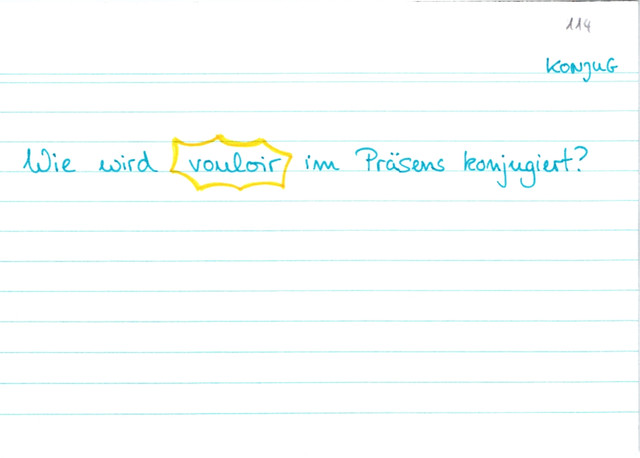 114
KONJUG
Wie wird vouloir im Präsens konjugiert?